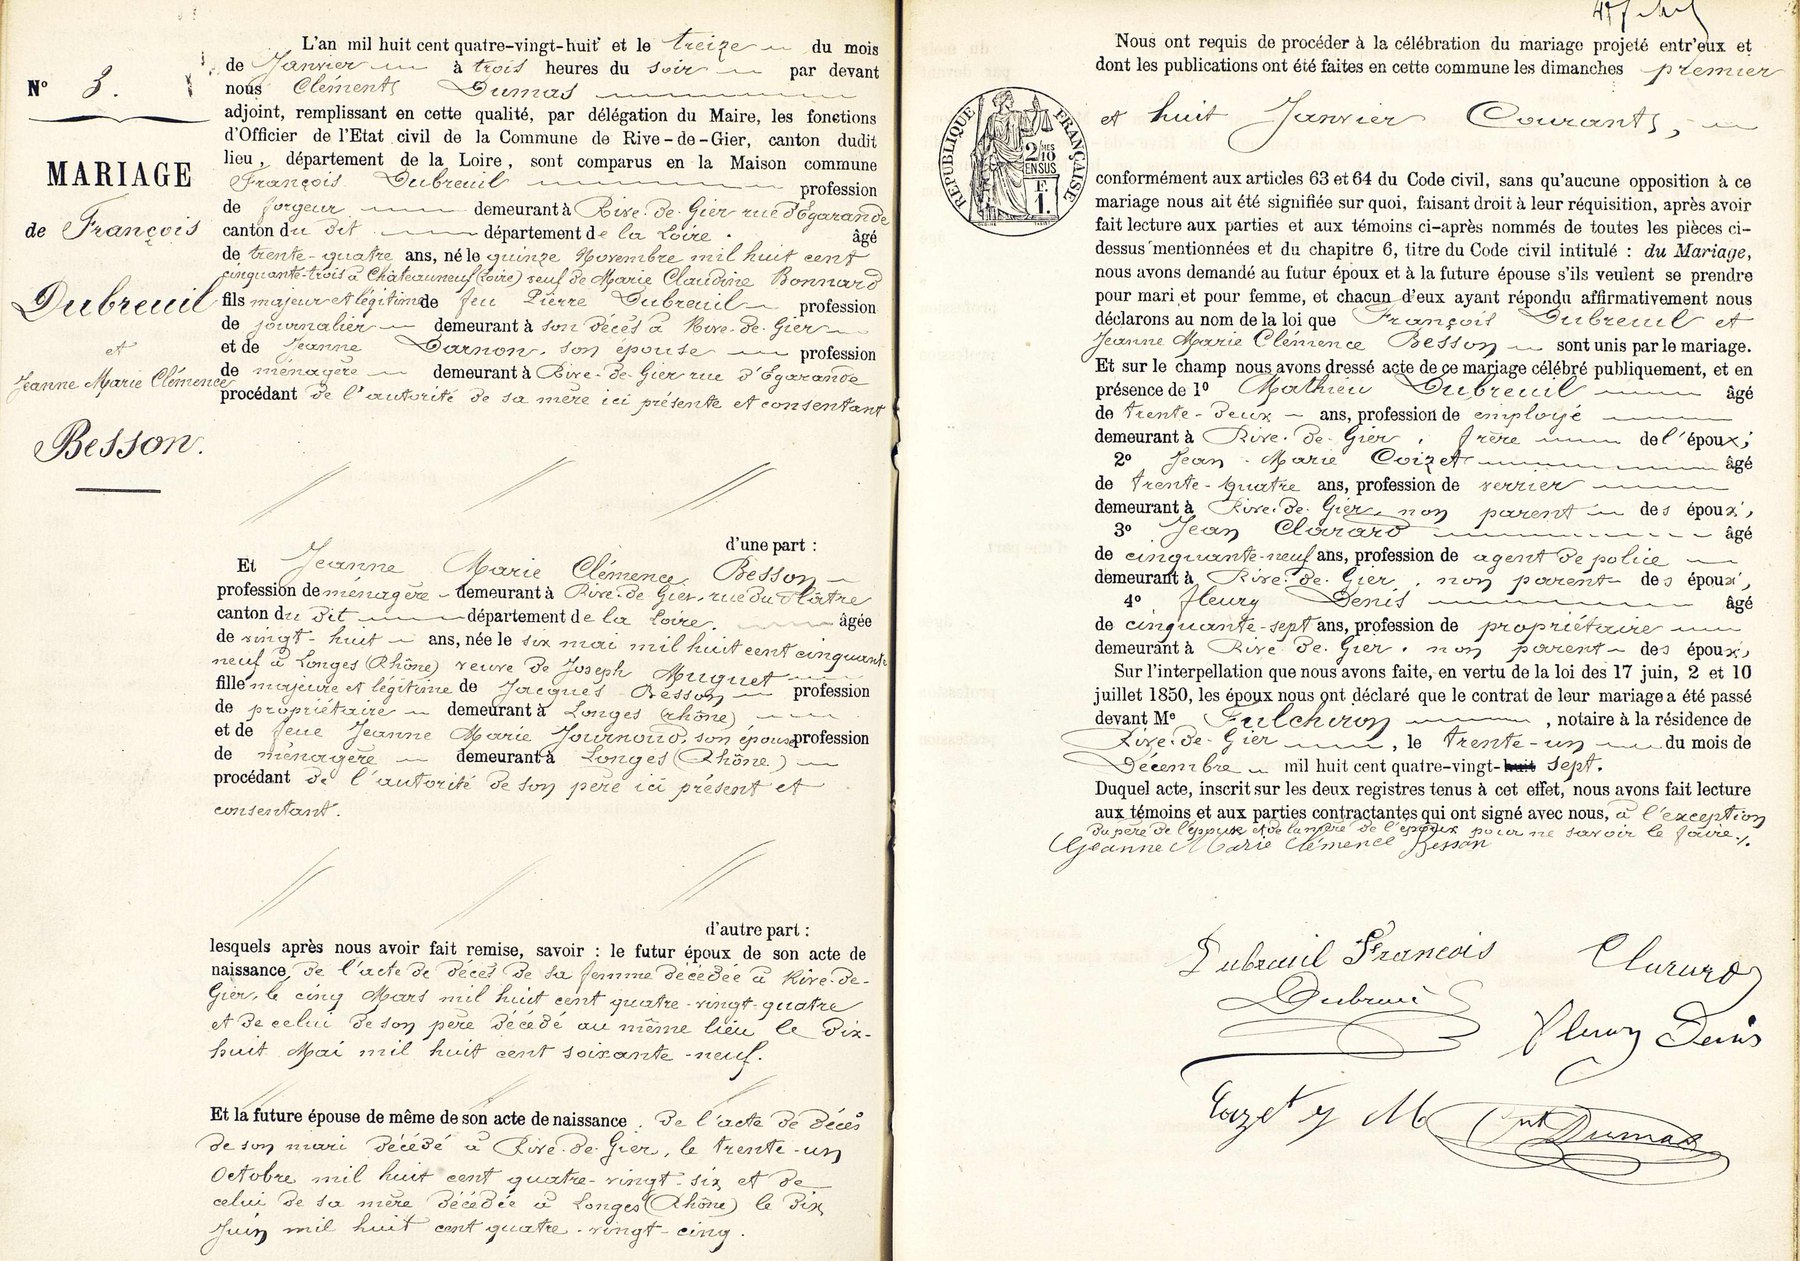 L'an mil huit cent quatre-vingt-huit et le treize du mois
de Janvier à trois heures du soir par devant
nous Clément Dumas
adjoint, remplissant en cette qualité, par délégation du Maire, les fonctions
d'Officier de l'Etat civil de la Commune de Rive-de-Gier, canton dudit
lieu, département de la Loire, sont comparus en la Maison commune
François Dubreuil profession
de forgeur demeurant à Rive-de-Gier rue d'Egarande
canton du dit département de la Loire. âgé
de trente-quatre ans, né le quinze Novembre mil huit cent
cinquante-trois à Châteauneuf (Loire) veuf de Marie Claudine Bonnard
fils majeur et légitime de feu Pierre Dubreuil profession
de journalier demeurant à son décès à Rive-de-Gier
et de Jeanne Darnon, son épouse profession
de ménagère demeurant à Rive-de-Gier rue d'Egarande
procédant de l'autorité de sa mère ici présente et consentant
d'une part :
Et Jeanne Marie Clémence Besson
profession de ménagère demeurant à Rive-de-Gier, rue du Plâtre
canton du dit département de la Loire. âgée
de vingt-huit ans, née le six mai mil huit cent cinquante
neuf à Longes (Rhône) veuve de Joseph Muguet
fille majeure et légitime de Jacques Besson profession
de propriétaire demeurant à Longes (Rhône)
et de feue Jeanne Marie Journoud, son épouse profession
de ménagère demeurant à Longes (Rhône)
procédant de l'autorité de son père ici présent et
consentant.
d'autre part :
lesquels après nous avoir fait remise, savoir : le futur époux de son acte de
naissance, de l'acte de décès de sa femme décédée à Rive-de-
Gier, le cinq Mars mil huit cent quatre-vingt-quatre
et de celui de son père décédé au même lieu le dix-
huit Mai mil huit cent soixante-neuf.
Et la future épouse de même de son acte de naissance. de l'acte de décès
de son mari décédé à Rive-de-Gier, le trente-un
Octobre mil huit cent quatre-vingt-six et de
celui de sa mère décédée à Longes (Rhône) le dix
Juin mil huit cent quatre-vingt-cinq.
N° 3.
MARIAGE
de François
Dubreuil
et
Jeanne Marie Clémence
Besson.
Nous ont requis de procéder à la célébration du mariage projeté entr'eux et
dont les publications ont été faites en cette commune les dimanches premier
et huit Janvier Courants,
RÉPUBLIQUE FRANÇAISE
2/10MES
EN SUS
F.
1.
conformément aux articles 63 et 64 du Code civil, sans qu'aucune opposition à ce
mariage nous ait été signifiée sur quoi, faisant droit à leur réquisition, après avoir
fait lecture aux parties et aux témoins ci-après nommés de toutes les pièces ci-
dessus mentionnées et du chapitre 6, titre du Code civil intitulé : du Mariage,
nous avons demandé au futur époux et à la future épouse s'ils veulent se prendre
pour mari et pour femme, et chacun d'eux ayant répondu affirmativement nous
déclarons au nom de la loi que François Dubreuil et
Jeanne Marie Clémence Besson sont unis par le mariage.
Et sur le champ nous avons dressé acte de ce mariage célébré publiquement, et en
présence de 1° Mathieu Dubreuil âgé
de trente-deux ans, profession de employé
demeurant à Rive-de-Gier, frère de l'époux;
2° Jean-Marie Coizet âgé
de trente-quatre ans, profession de verrier
demeurant à Rive-de-Gier, non parent des époux,
3° Jean Clarard âgé
de cinquante-neuf ans, profession de agent de police
demeurant à Rive-de-Gier, non parent des époux,
4° fleury Denis âgé
de cinquante-sept ans, profession de propriétaire
demeurant à Rive-de-Gier, non parent des époux,
Sur l'interpellation que nous avons faite, en vertu de la loi des 17 juin, 2 et 10
juillet 1850, les époux nous ont déclaré que le contrat de leur mariage a été passé
devant Me Fulchiron, notaire à la résidence de
Rive-de-Gier, le trente-un du mois de
Décembre mil huit cent quatre-vingt-huit sept.
Duquel acte, inscrit sur les deux registres tenus à cet effet, nous avons fait lecture
aux témoins et aux parties contractantes qui ont signé avec nous, à l'exception
du père de l'épouse et de la mère de l'époux pour ne savoir le faire.
Jeanne Marie Clémence Besson
Dubreuil François Clarard
Dubreuil
fleury Denis
Dumas